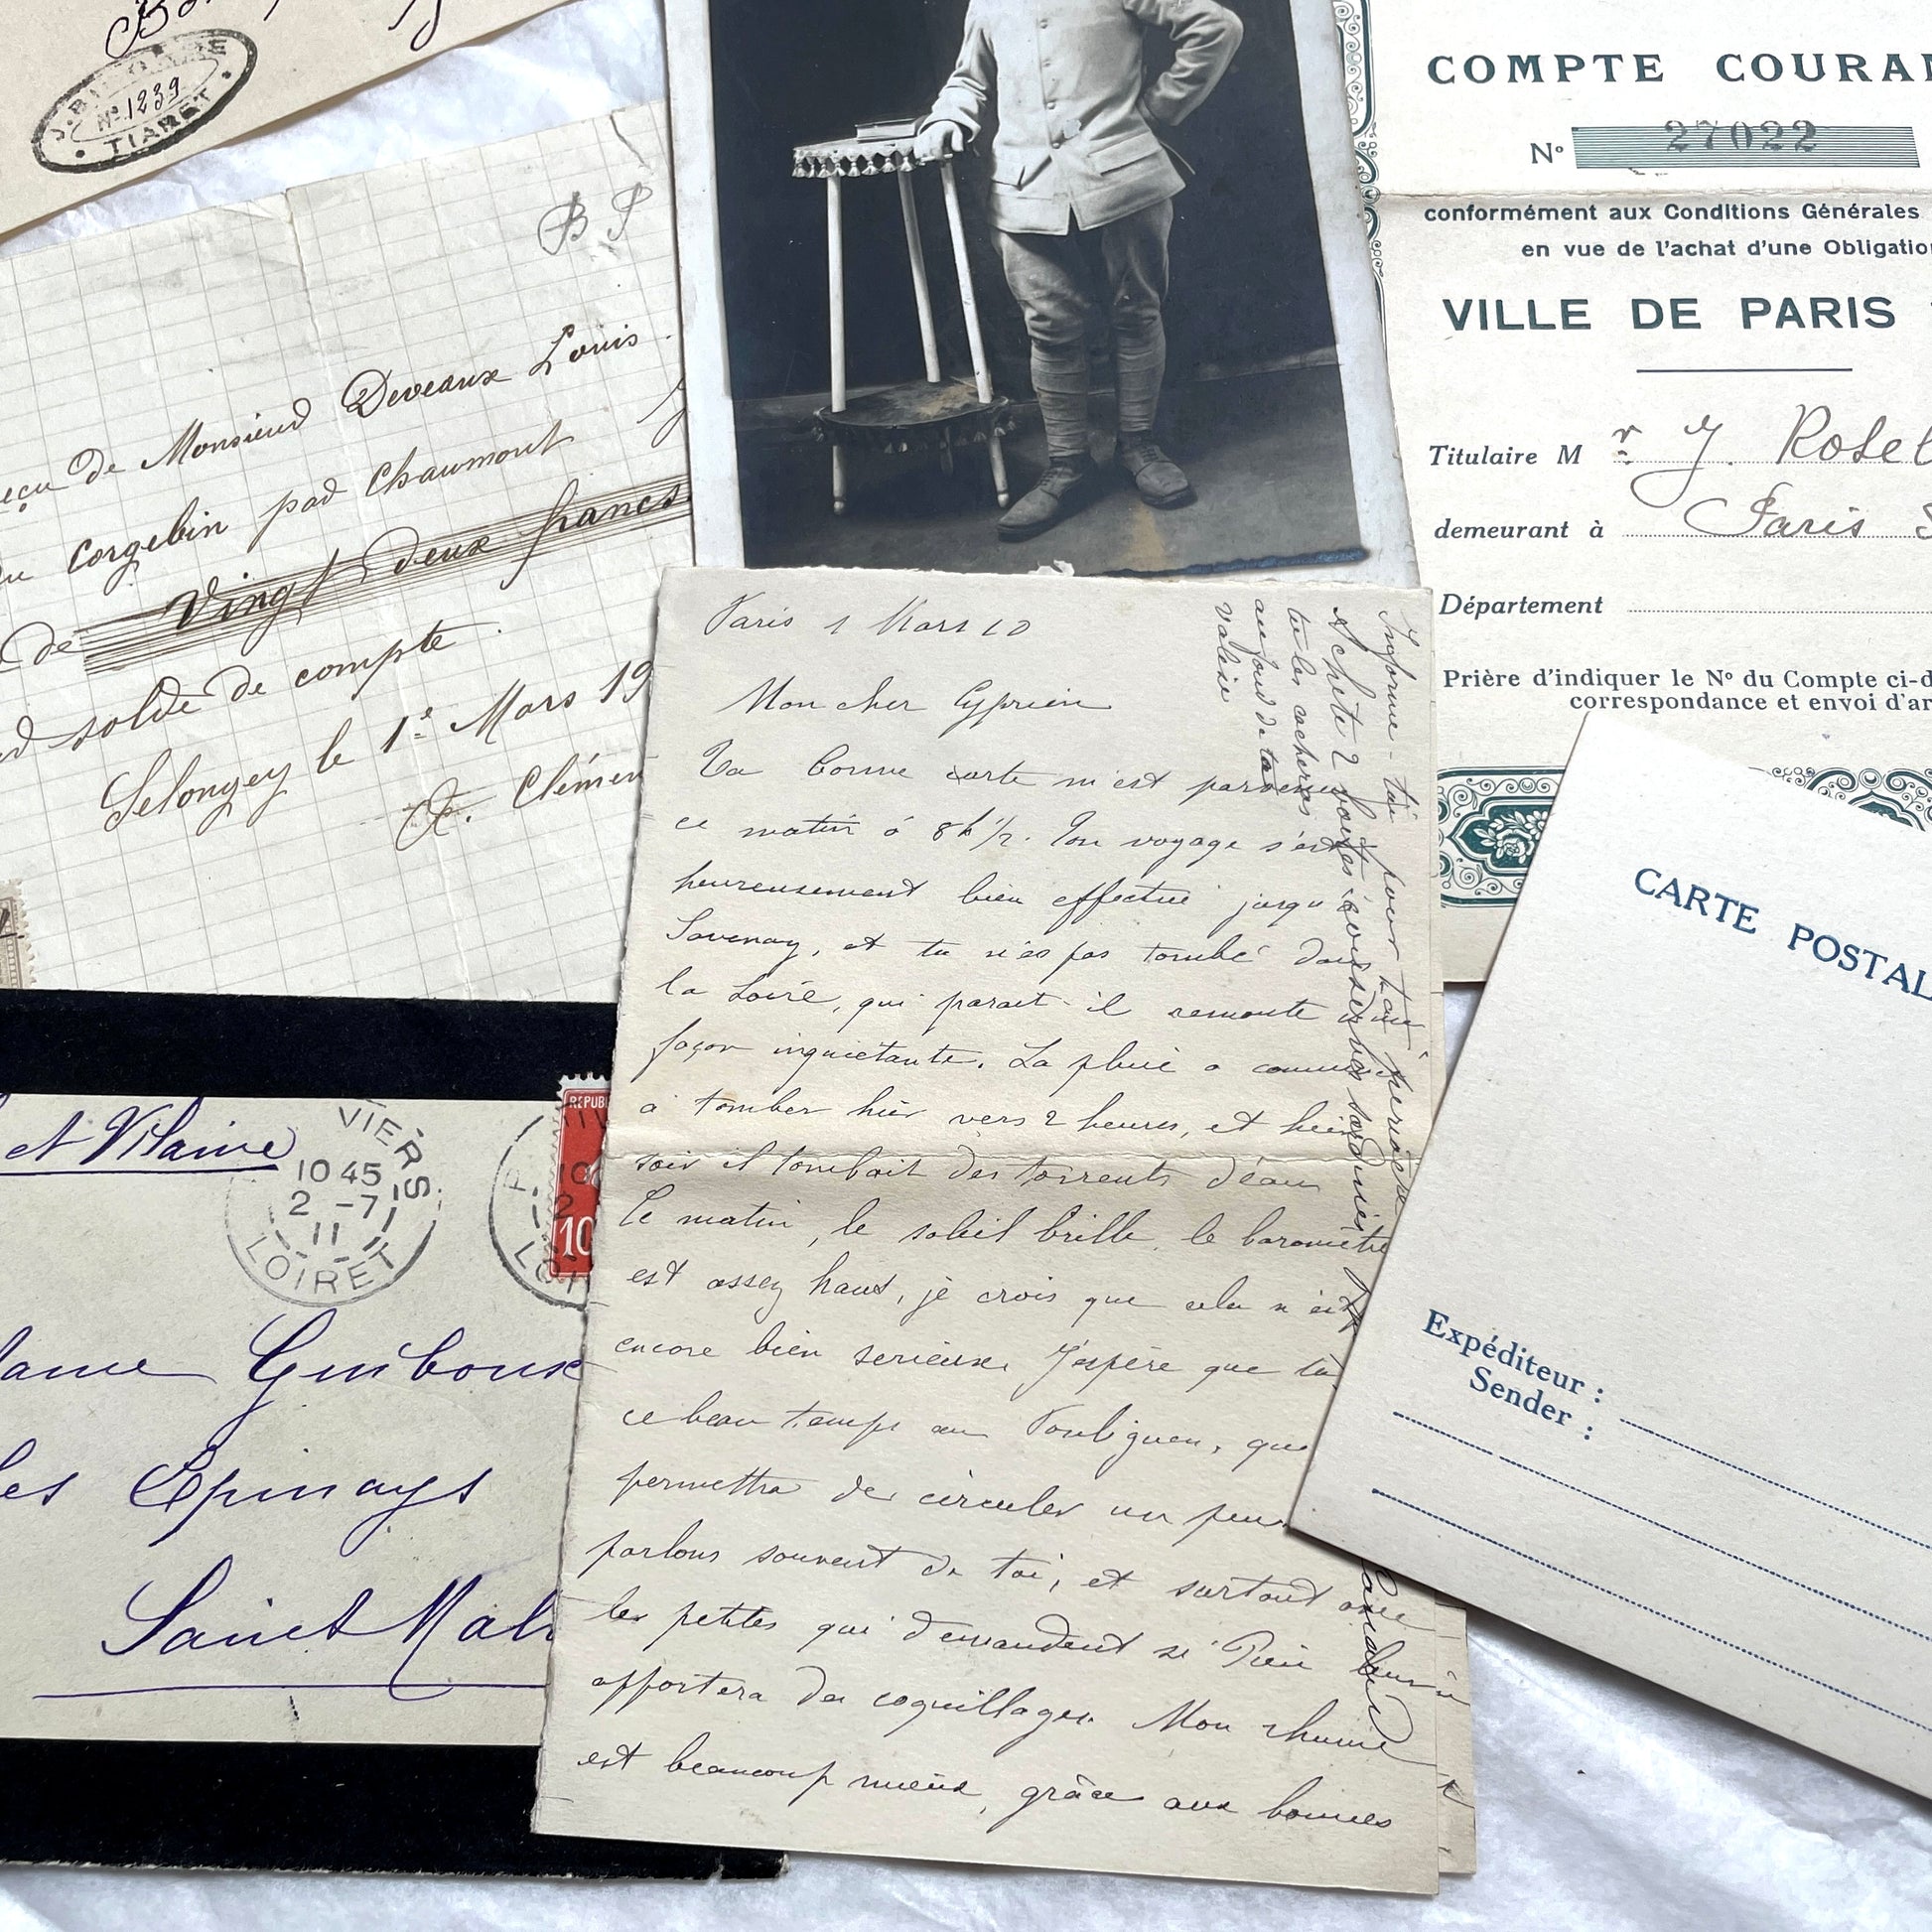 Nº 1239
TIARET
B P
eçu de Monsieur Deveaux Louis
corgebin par Chaumont
de Vingt deux francs
solde de compte
Selongey le 1er Mars 19
Clémen
COMPTE COURAN
Nº 27022
conformément aux Conditions Générales
en vue de l'achat d'une Obligation
VILLE DE PARIS
Titulaire M r J. Rosel
demeurant à Paris
Département
Prière d'indiquer le Nº du Compte ci-d
correspondance et envoi d'ar
CARTE POSTAL
Expéditeur :
Sender :
et Vilaine
VIERS
10 45
2 -7
11
LOIRET
REPUB
10
LOI
ame Guiboux
les Epinays
Saint Mal
Paris 1 Mars 10
Mon cher Cyprien
Ta bonne carte m'est parvenue
ce matin à 8h 1/2. Ton voyage s'est
heureusement bien effectué jusqu'
Savenay, et tu n'es pas tombé dans
la Loire, qui parait-il remonte d'une
façon inquiétante. La pluie a commencé
à tomber hier vers 2 heures, et hier
soir il tombait des torrents d'eau
Ce matin, le soleil brille, le baromètre
est assez haut, je crois que cela n'est
encore bien serieux. J'espère que tu
ce beau temps au Pouliguen, qui
permettra de circuler un peu
parlons souvent de toi, et surtout avec
les petites qui demandent si leur
apportera des coquillages. Mon rhume
est beaucoup mieux, grâce aux bonnes
Informe-toi pour
Achète 2 boîtes conserves sardines
tu les cacheras
au fond de ta
valise